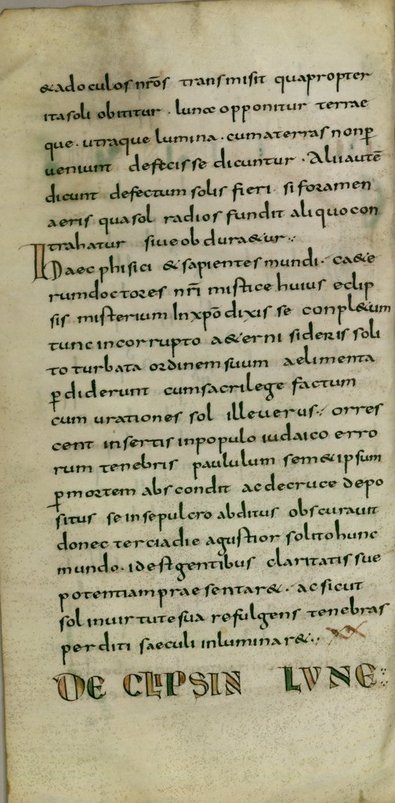 & ad oculos nr̄os transmisit quapropter
ita soli obititur · lunæ opponitur terrae
que · utraque lumina · cum aterras non ꝑ
ueniunt defecisse dicuntur · Alii autē
dicunt defectum solis fieri · si foramen
aeris qua sol radios fundit aliquo con
trahatur siue obdura&ur ·:
Haec phisici & sapientes mundi · ca&e
rum doctores nr̄i mistice huius eclip
sis misterium In xp̄o dixisse conpl&um
tunc incorrupto a&erni sideris soli
to turbata ordinem suum aelimenta
ꝑdiderunt cum sacrilege factum
cum urationes sol ille uerus ·: orres
cent insertis in populo iudaico erro
rum tenebris paululum sem&ipsum
ꝑ mortem abscondit ac de cruce depo
situs se in sepulcro abditus obscurauit
donec tercia die agustior solito hunc
mundo · id est gentibus claritatis sue
potentiam praesentar& · ac sicut
sol in uirtute sua refulgens tenebras
perditi saeculi inluminar& ·:
DE CLIPSIN LUNE ·: